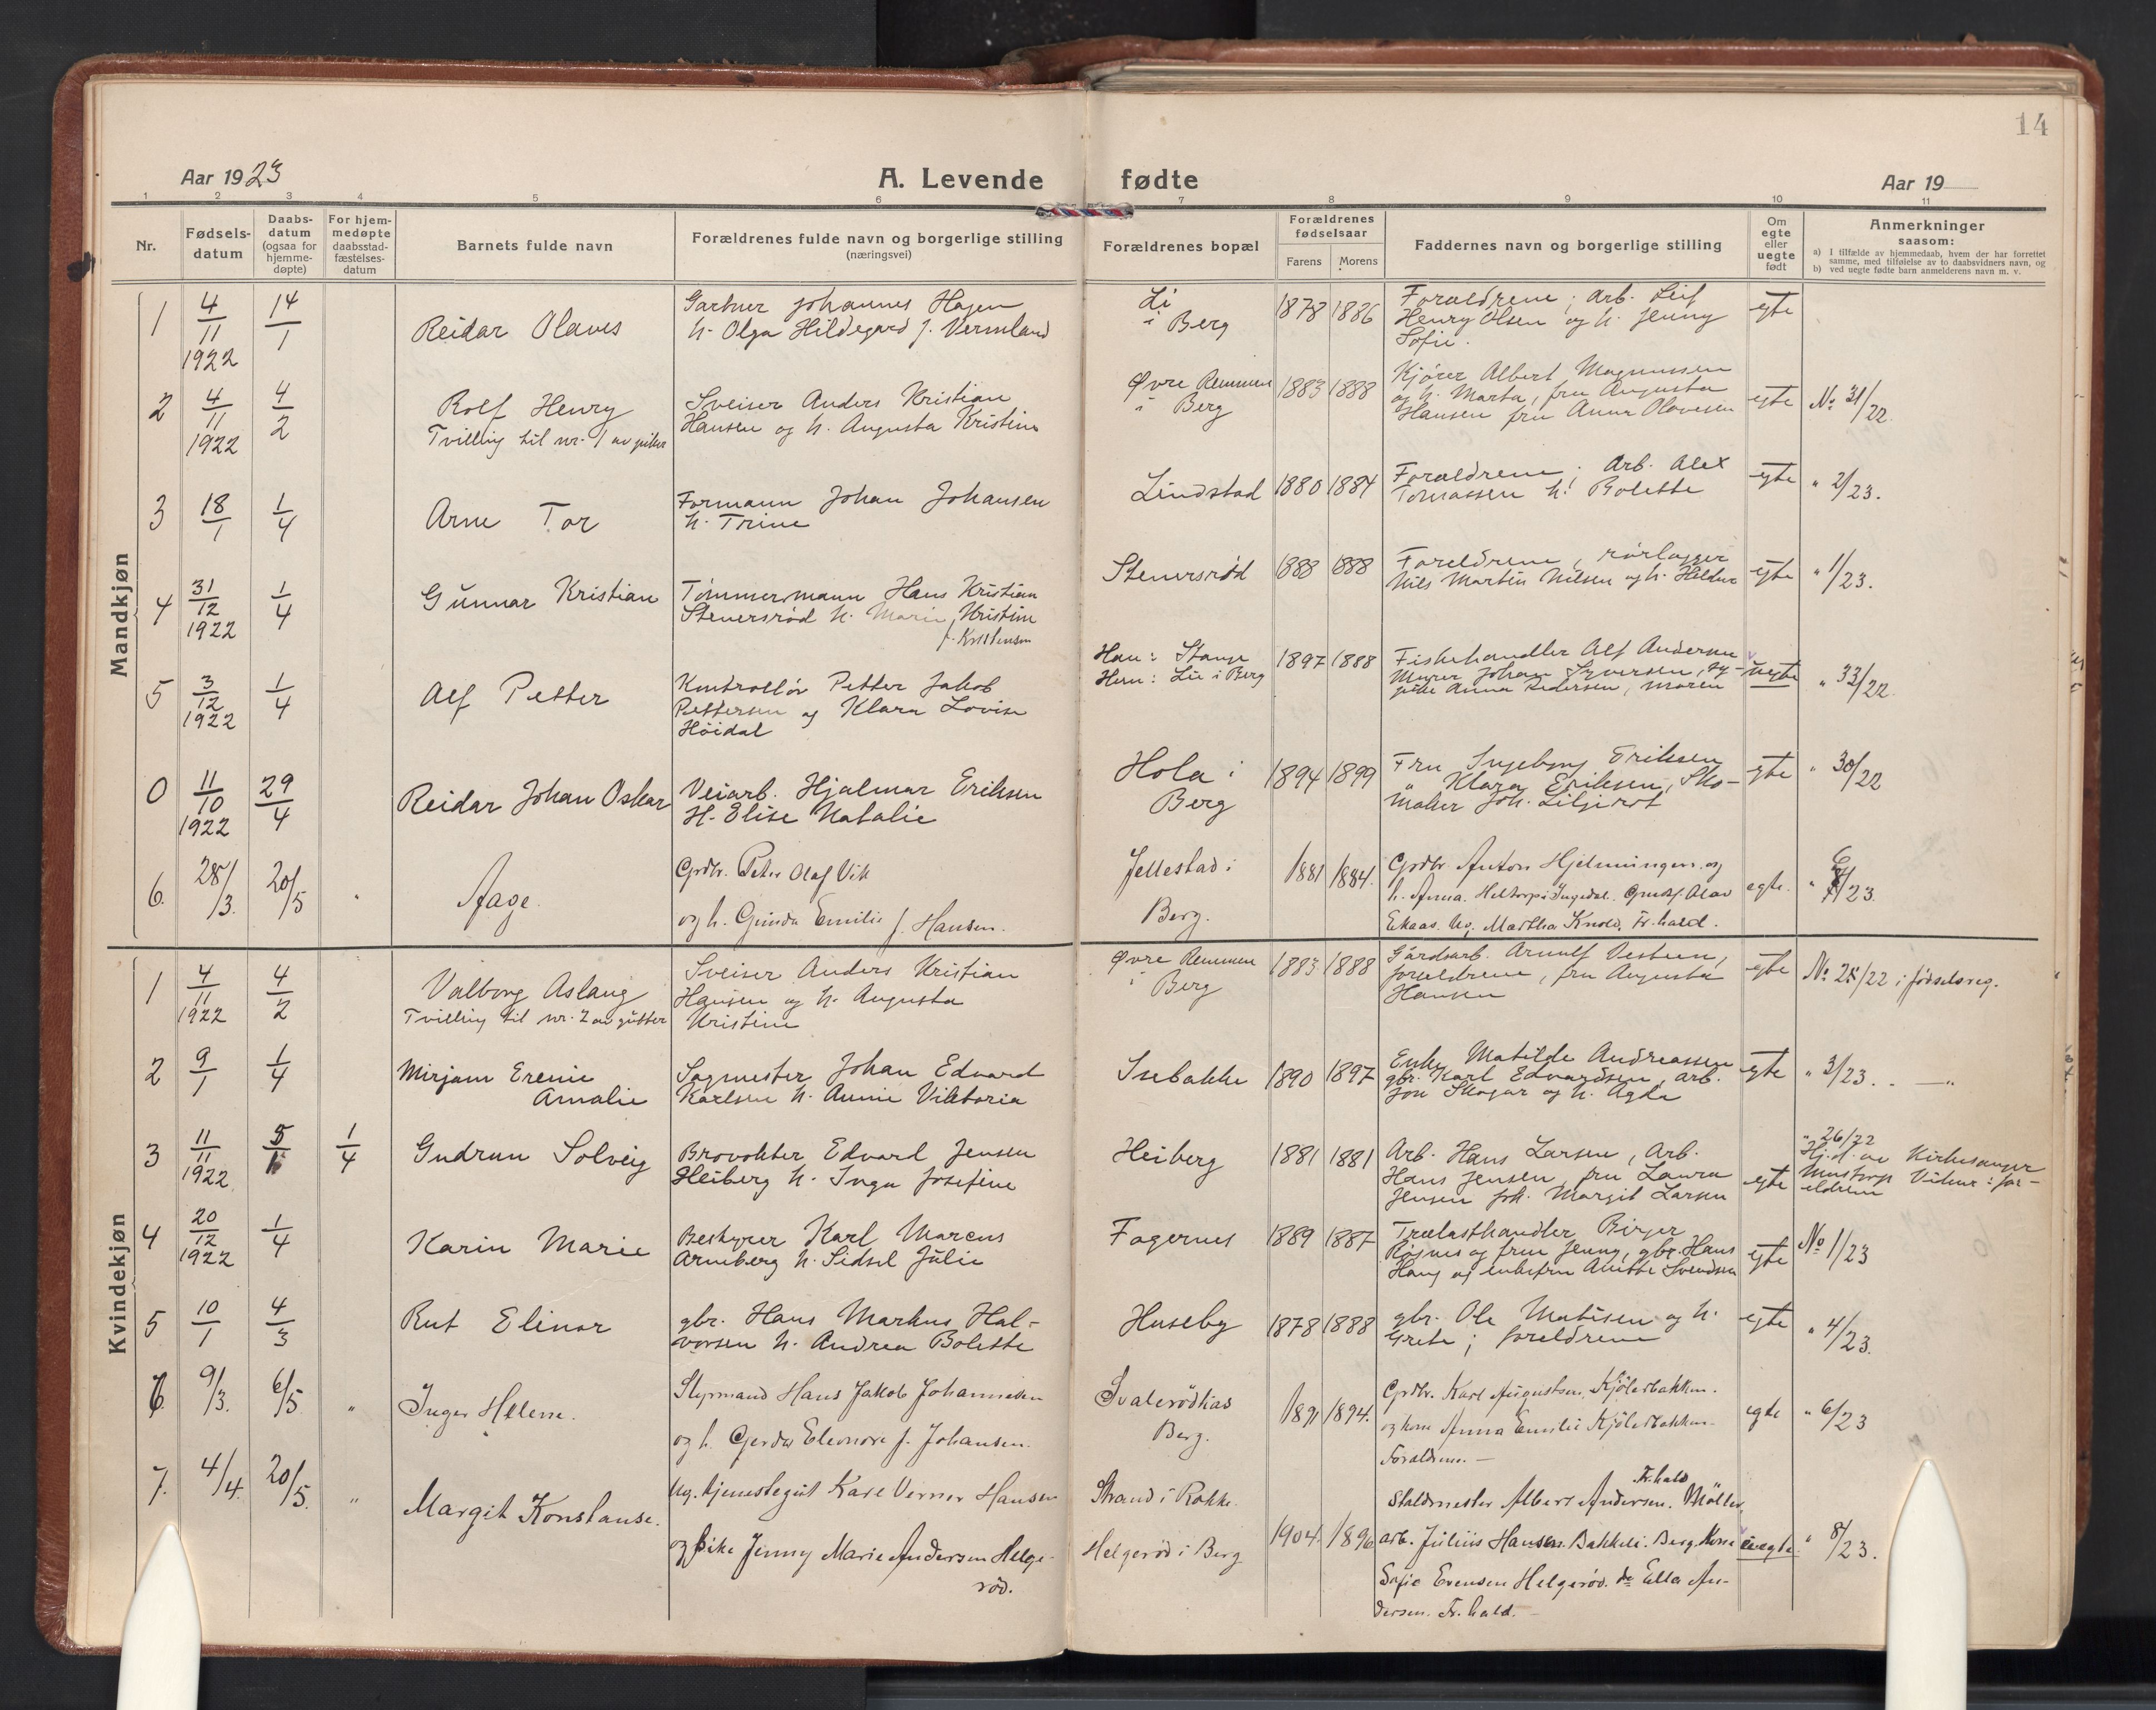 14
Aar 1923
A. Levende fødte
Aar 19
1 2 3 4 5 6 7 8 9 10 11
Nr.
Fødsels-
datum
Daabs-
datum
(ogsaa for
hjemme-
døpte)
For hjem-
medøpte
daabsstad-
fæstelses-
datum
Barnets fulde navn
Forældrenes fulde navn og borgerlige stilling
(næringsvei)
Forældrenes bopæl
Forældrenes
fødselsaar
Farens Morens
Faddernes navn og borgerlige stilling
Om
egte
eller
uegte
født
Anmerkninger
saasom:
a) I tilfælde av hjemmedaab, hvem der har forrettet
samme, med tilføielse av to daabsvidners navn, og
b) ved uegte fødte barn anmelderens navn m. v.
Mandkjøn
1
4/11
1922
14/1
Reidar Olaves
Gartner Johannes Hagen
h. Olga Hildegard f. Vermland
Li
i Berg
1878 1886
Foreldrene; arb. Leif
Henry Olsen og h. Jenny
Sofie.
egte
2
4/11
1922
4/2
Rolf Henry
Tvilling til nr. 1 av piker
Sveiser Anders Kristian
Hansen og h. Augusta Kristine
Øvre Remmen
i Berg
1883 1888
Kjører Albert Magnussen
og h. Marta, fru Augusta
Hansen fru Anna Olavesen
egte
No 31/22.
3
18/1
1/4
Arne Tor
Formann Johan Johansen
h. Trine
Lindstad
1880 1884
Foreldrene; Arb. Alex
Tomassen h. Bolette
egte
" 2/23.
4
31/12
1922
1/4
Gunnar Kristian
Tømmermann Hans Kristian
Stenersrød h. Marie Kristine
f. Kristensen
Stenersrød
1888 1888
Foreldrene, rørlegger
Nils Martin Nilsen og h. Hildur
egte
" 1/23.
5
3/12
1922
1/4
Alf Petter
Kontrollør Petter Jakob
Pettersen og Klara Lovise
Høidal
Han: Stange
Hun: Lie i Berg
1897 1888
Fiskehandler Alf Andersen
Murer Johan Syversen, sy-
pike Anna Pedersen, moren
uegte
" 33/22.
0
11/10
1922
29/4
Reidar Johan Oskar
Veiarb. Hjalmar Eriksen
H. Elise Natalie
Hola i
Berg
1894 1899
Fru Ingeborg Eriksen
" Klara Eriksen, Sko-
maker Joh. Liljerot
egte
" 30/22
6.
28/3.
20/5
"
Aage.
Grdbr. Peter Olaf Vik
og h. Gunda Emilie f. Hansen.
Jellestad i
Berg.
1881 1884.
Grdbr. Anton Hjelmungen og
h. Anna. Heltorp i Ingedal. Olav
Ekaas. Ug. Martha Knold, Fr.hald.
egte.
/23.
Kvindekjøn
1
4/11
1922
4/2
Valborg Aslaug
Tvilling til nr. 2 av gutter
Sveiser Anders Kristian
Hansen og h. Augusta
Kristine
Øvre Remmen
i Berg
1883 1888
Gårdsarb. Arnulf Vesteen,
foreldrene, fru Augusta
Hansen
egte
No 28/22 i fødselsreg.
2
9/1
1/4
Mirjam Erenie
Amalie
Sagmester Johan Edvard
Karlsen h. Annie Viktoria
Isebakke
1890 1897
Enke Matilde Andreassen
gbr. Karl Edvardsen, arb.
Jon Skogar og h. Agda
egte
" 3/23. - " -
3
11/11
1922
5/
1/4
Gudrun Solveig
Brovokter Edvard Jensen
Heiberg h. Inga Josefine
Heiberg
1881 1881
Arb. Hans Larsen, Arb.
Hans Jensen, fru Laura
Jensen frk. Margit Larsen
egte
" 26/22
Hj.d. av Kirkesanger
Mustorp Vidner: for-
eldrene
4
20/12
1922
1/4
Karin Marie
Bestyrer Karl Marcus
Arneberg h. Sidsel Julie
Fagernes
1889 1887
Trælasthandler Birger
Røsnes og frue Jenny, gbr. Hans
Haug og enkefru Anette Svendsen
egte
No 1/23
5
10/1
4/3
Rut Elinor
gbr. Hans Markus Hal-
vorsen h. Andrea Bolette
Huseby
1878 1888
gbr. Ole Matisen og h.
Grete; foreldrene
egte
" 4/23.
6.
9/3.
6/5
"
Inger Helene.
Styrmand Hans Jakob Johannesen
og h. Gerda Eleonore f. Johansen.
Svalerødkas
Berg.
1891 1894.
Grdbr. Karl Augustsen, Kjølerbakken.
og kone Anna Emilie Kjølerbakken.
Forældrene. —
egte
" 6/23
7.
4/4.
20/5.
"
Margit Konstanse.
Ug. tjenestegut Karl Verner Hansen
og Pike Jenny Marie Andersen Helge-
rød.
Strand i Rokke.
Helgerød i Berg
1904. 1896
Fr.hald
Staldmester Albert Andersen. Møller,
arb. Julius Hansen. Bakkeli. Berg. Kone
Sofie Evensen Helgerød. do Ella An-
dersen. Fr.hald. —
uegte.
" 8/23.